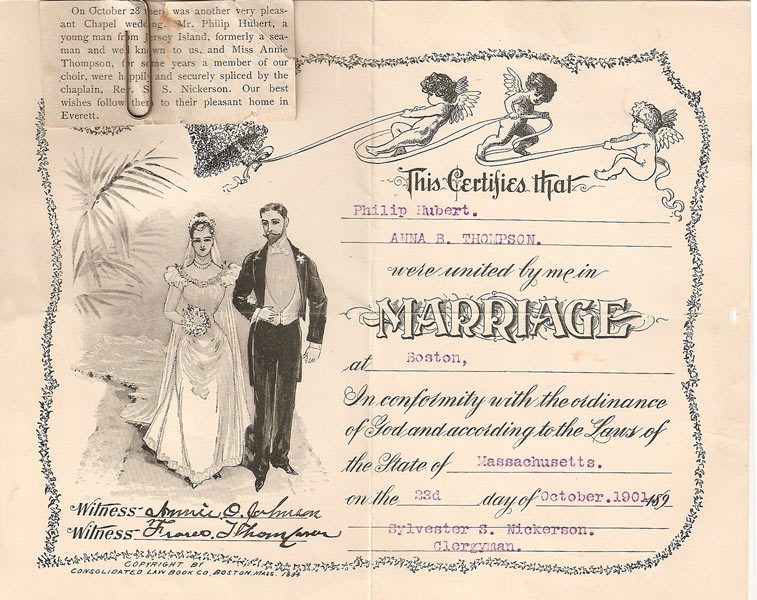 On October 28 then was another very pleas-
ant Chapel wedding. Mr. Philip Hubert, a
young man from Jersey Island, formerly a sea-
man and well known to us, and Miss Annie
Thompson, for some years a member of our
choir, were happily and securely spliced by the
chaplain, Rev. S. S. Nickerson. Our best
wishes follow them to their pleasant home in
Everett.
This Certifies that
Philip Hubert.
ANNA B. THOMPSON.
were united by me in
MARRIAGE
at Boston,
In conformity with the ordinance
of God and according to the Laws of
the State of Massachusetts.
on the 23d day of October.1901 189
Sylvester S. Nickerson.
Clergyman.
Witness Annie O. Johnson
Witness Thompson
COPYRIGHT BY
CONSOLIDATED LAW BOOK CO, BOSTON, MASS. 1894